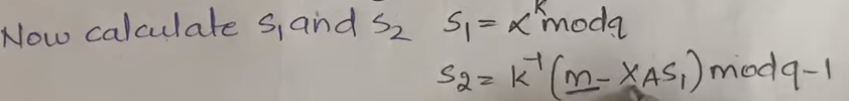 Now calculate S₁ and S₂ S₁ = α^K mod q
S₂ = k⁻¹ (m - X_A S₁) mod q-1